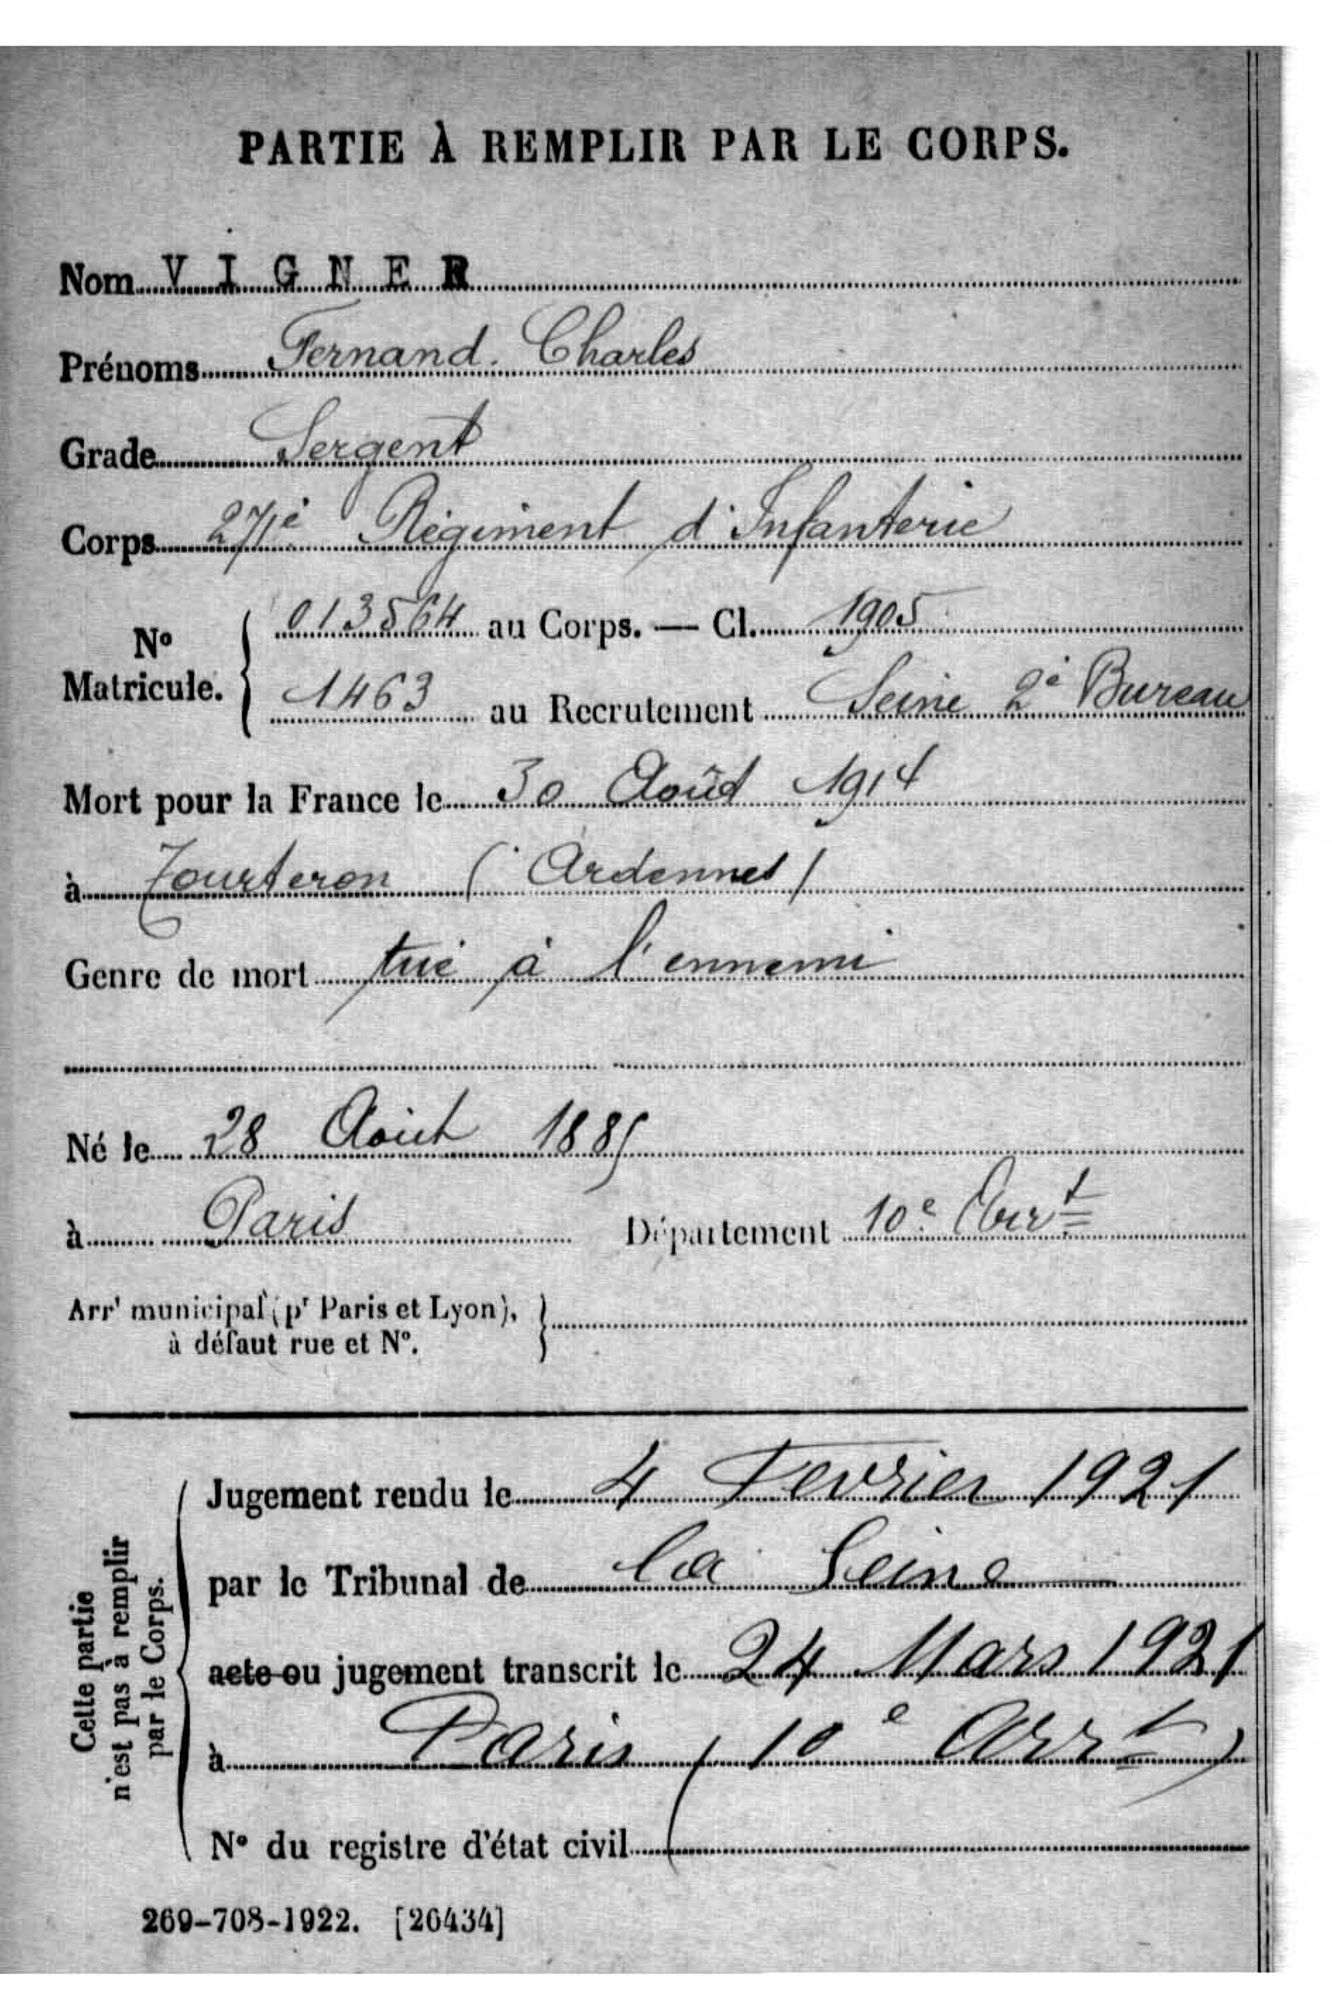 PARTIE À REMPLIR PAR LE CORPS.
Nom VIGNER
Prénoms Fernand. Charles
Grade Sergent
Corps 271e Régiment d'Infanterie
No Matricule. { 013564 au Corps. — Cl. 1905
1463 au Recrutement Seine 2e Bureau
Mort pour la France le 30 Août 1914
à Tourteron (Ardennes)
Genre de mort tué à l'ennemi
Né le 28 Août 1885
à Paris Département 10e Arrt
Arrt municipal (pr Paris et Lyon), }
à défaut rue et No.
Cette partie
n'est pas à remplir
par le Corps.
Jugement rendu le 4 Fevrier 1921
par le Tribunal de la Seine
acte ou jugement transcrit le 24 Mars 1921
à Paris (10e Arrt)
No du registre d'état civil
269-708-1922. [26434]